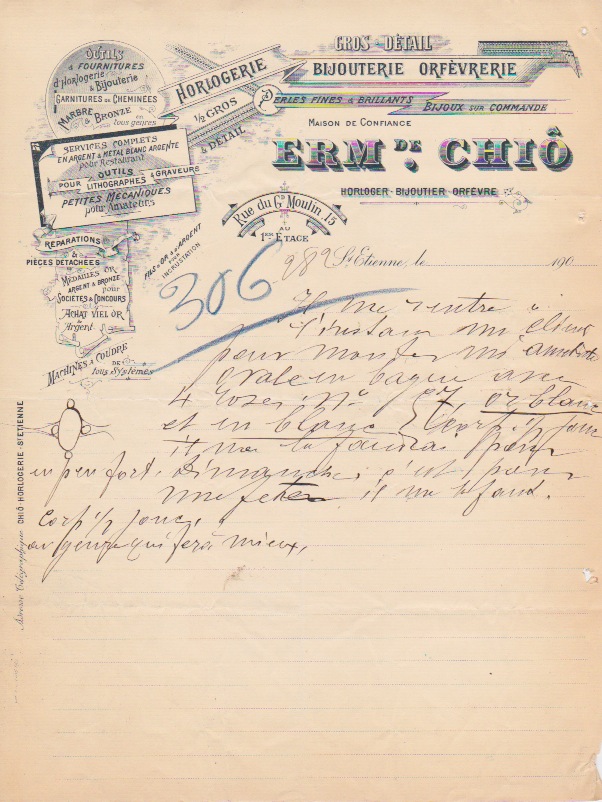 OUTILS
& FOURNITURES
d'Horlogerie
& Bijouterie
GARNITURES DE CHEMINÉES
MARBRE
& BRONZE
tous genres
SERVICES COMPLETS
EN ARGENT & METAL BLANC ARGENTÉ
pour Restaurant
OUTILS
POUR LITHOGRAPHES & GRAVEURS
PETITES MÉCANIQUES
pour Amateurs
RÉPARATIONS
&
PIÈCES DÉTACHÉES
MÉDAILLES OR
ARGENT & BRONZE
pour
SOCIÉTÉS & CONCOURS
ACHAT VIEL OR
& Argent
MACHINES A COUDRE
DE
tous Systèmes
HORLOGERIE
1/2 GROS
& DÉTAIL
GROS & DÉTAIL
BIJOUTERIE ORFÈVRERIE
PERLES FINES & BRILLANTS
BIJOUX SUR COMMANDE
MAISON DE CONFIANCE
ERM. DE CHIÔ
HORLOGER-BIJOUTIER ORFÈVRE
Rue du Gd Moulin, 15
AU
1ER ÉTAGE
FILS OR & ARGENT
POUR
INCRUSTATION
306
989 St Etienne, le 190
Il me rentre à
l'instant un client
pour monter une
ovale en bague avec
4 roses or blanc
et en blanc
il me la faudrai pour
un peu fort. Dimanche, c'est pour
une fête il me la faut.
Corps jonc,
au genre qui fera mieux.
Adresse Télégraphique CHIÔ HORLOGERIE ST ETIENNE